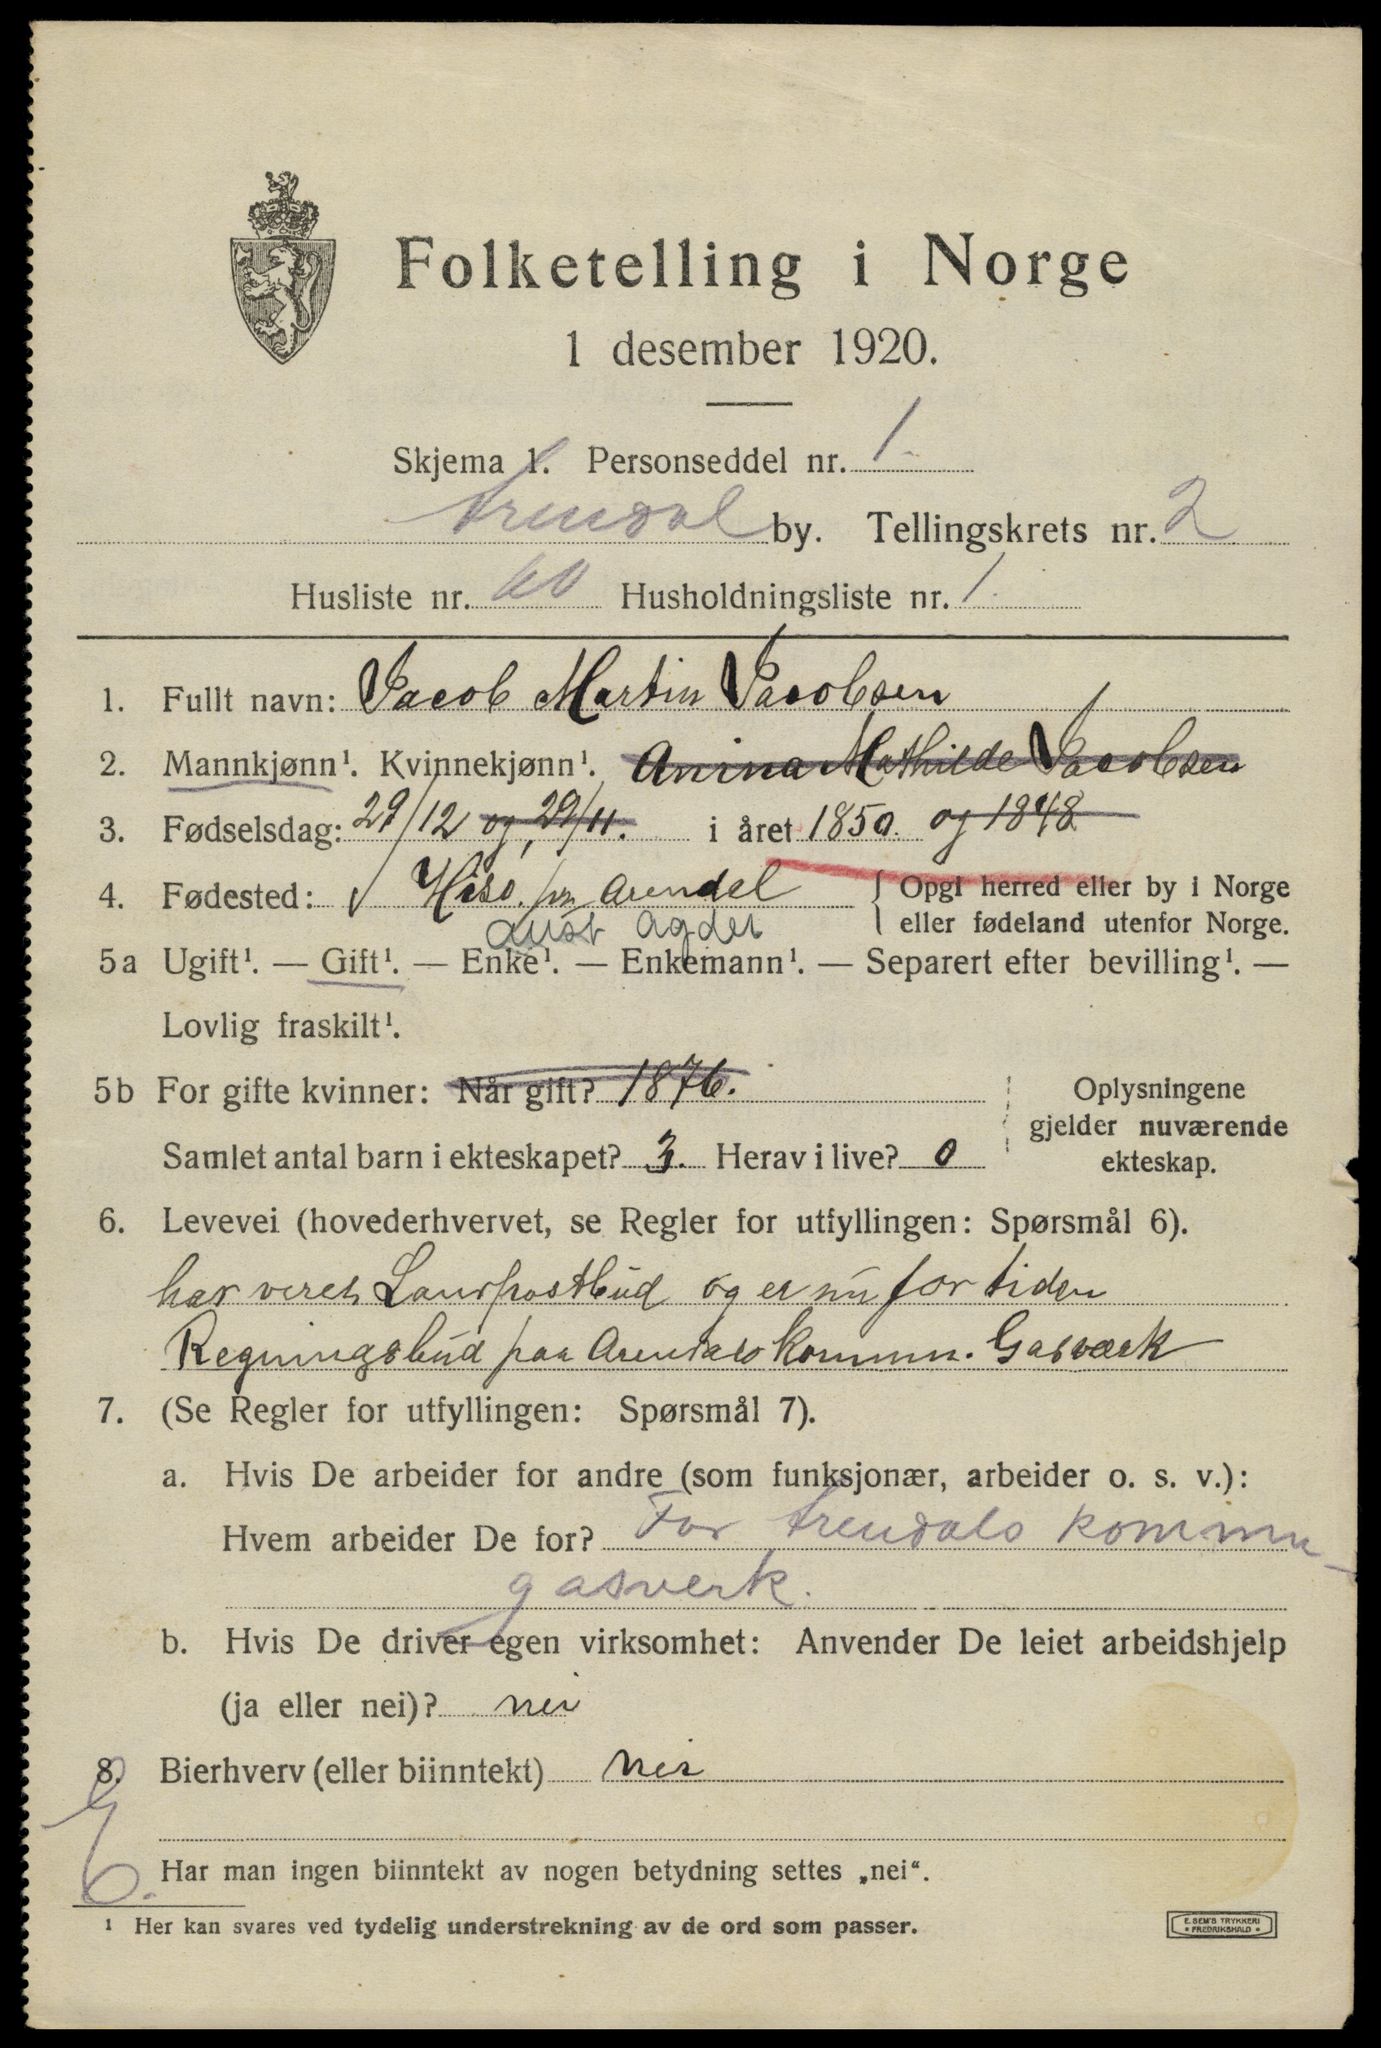 Folketelling i Norge
1 desember 1920.
Skjema 1. Personseddel nr. 1.
Arendal by. Tellingskrets nr. 2
Husliste nr. 60 Husholdningsliste nr. 1.
1. Fullt navn: Jacob Martin Jacobsen
2. Mannkjønn¹. Kvinnekjønn¹. Anina Mathilde Jacobsen
3. Fødselsdag: 29/12 og, 29/11. i året 1850. og 1848
4. Fødested: Hisø pr Arendal { Opgi herred eller by i Norge
Aust Agder eller fødeland utenfor Norge.
5a Ugift¹. — Gift¹. — Enke¹. — Enkemann¹. — Separert efter bevilling¹. —
Lovlig fraskilt¹.
5b For gifte kvinner: Når gift? 1876. Oplysningene
gjelder nuværende
Samlet antal barn i ekteskapet? 3. Herav i live? 0 ekteskap.
6. Levevei (hovederhvervet, se Regler for utfyllingen: Spørsmål 6).
har veret Lanpostbud og er nu for tiden
Regningsbud paa Arendals Kommun. Gasværk
7. (Se Regler for utfyllingen: Spørsmål 7).
a. Hvis De arbeider for andre (som funksjonær, arbeider o. s. v.):
Hvem arbeider De for? For Arendals kommu-
gasverk.
b. Hvis De driver egen virksomhet: Anvender De leiet arbeidshjelp
(ja eller nei)? nei
8. Bierhverv (eller biinntekt) nei
Har man ingen biinntekt av nogen betydning settes „nei“.
¹ Her kan svares ved tydelig understrekning av de ord som passer.
E. SEM'S TRYKKERI
* FREDRIKSHALD *